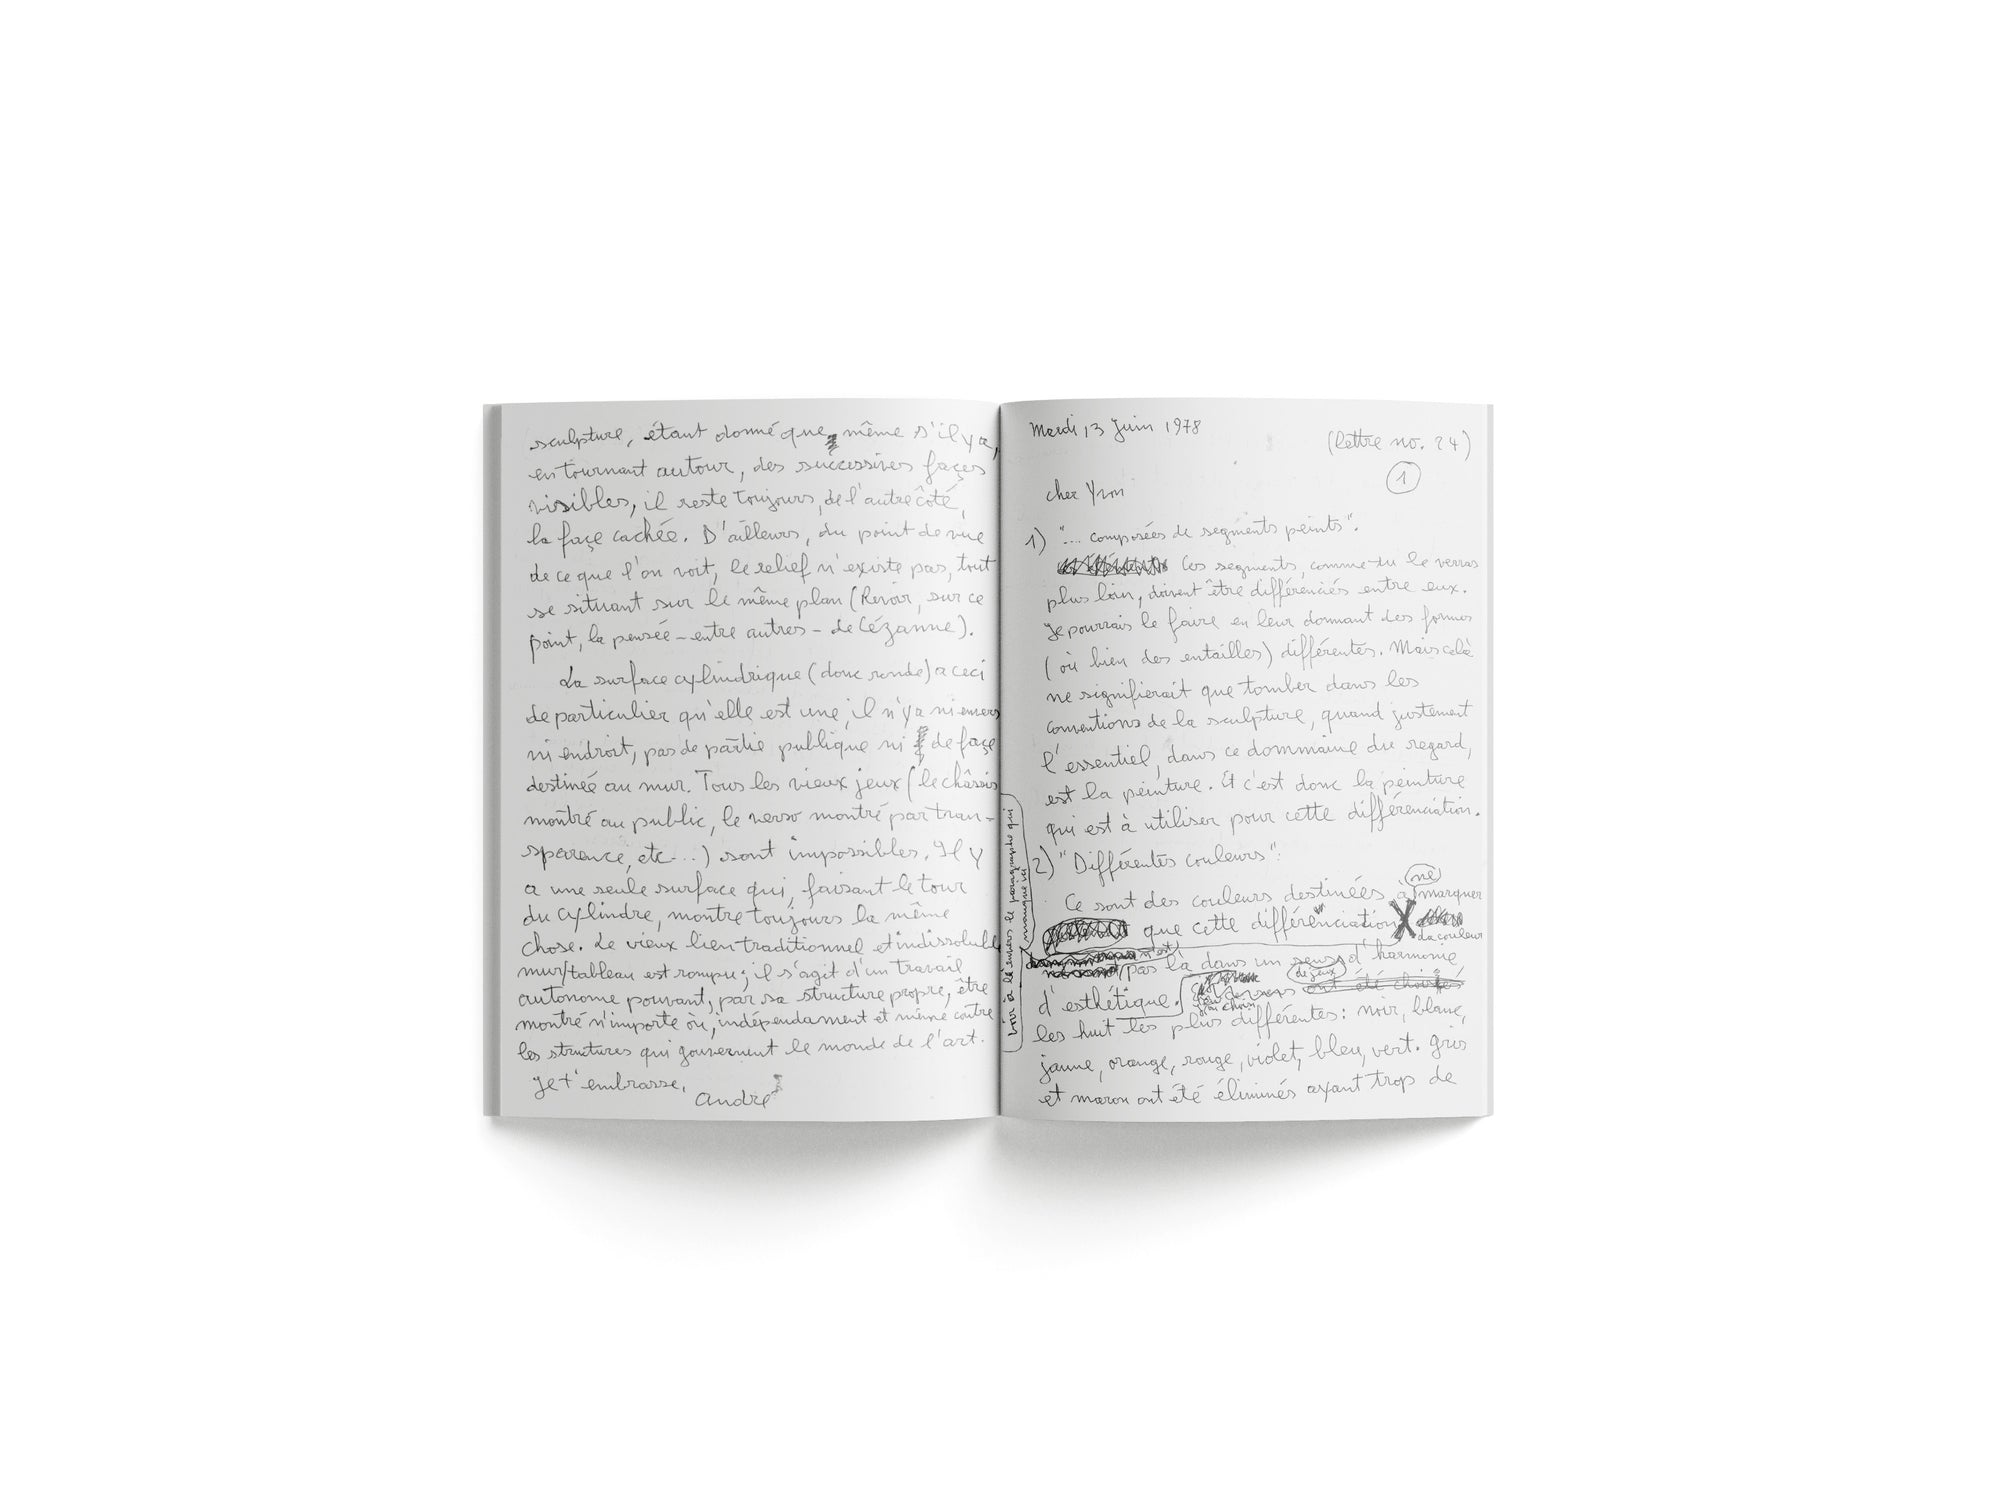 sculpture, étant donné que même s'il y a,
en tournant autour, des successives façes
visibles, il reste toujours, de l'autre côté,
la façe cachée. D'ailleurs, du point de vue
de ce que l'on voit, le relief n'existe pas, tout
se situant sur le même plan (Revoir, sur ce
point, la pensée – entre autres – de Cézanne).
La surface cylindrique (donc ronde) a ceci
de particulier qu'elle est une; il n'y a ni envers
ni endroit, pas de partie publique ni de façe
destinée au mur. Tous les vieux jeux (le châssis
montré au public, le verso montré par tran-
sparence, etc...) sont impossibles. Il y
a une seule surface qui, faisant le tour
du cylindre, montre toujours la même
chose. Le vieux lien traditionnel et indissoluble
mur/tableau est rompu; il s'agit d'un travail
autonome pouvant, par sa structure propre, être
montré n'importe où, indépendament et même contre
les structures qui gouvernent le monde de l'art.
Je t'embrasse,
André
Mardi 13 Juin 1978
(lettre no. 24)
1
cher Yvon
1) "... composées de segments peints".
Ces segments, comme tu le verras
plus loin, doivent être différenciés entre eux.
Je pourrais le faire en leur donnant des formes
(où bien des entailles) différentes. Mais celà
ne signifierait que tomber dans les
conventions de la sculpture, quand justement
l'essentiel, dans ce dommaine du regard,
est la peinture. Et c'est donc la peinture
qui est à utiliser pour cette différenciation.
voir à l'envers le paragraphe qui
manque ici
2) "Différentes couleurs":
ne
Ce sont des couleurs destinées à marquer
que cette différenciation X
La couleur
n'est
pas là dans un sens d'harmonie
de jeux
d'esthétique. ont été choisies
j'ai choisi
les huit les plus différentes: noir, blanc,
jaune, orange, rouge, violet, bleu, vert. Gris
et maron ont été éliminés ayant trop de